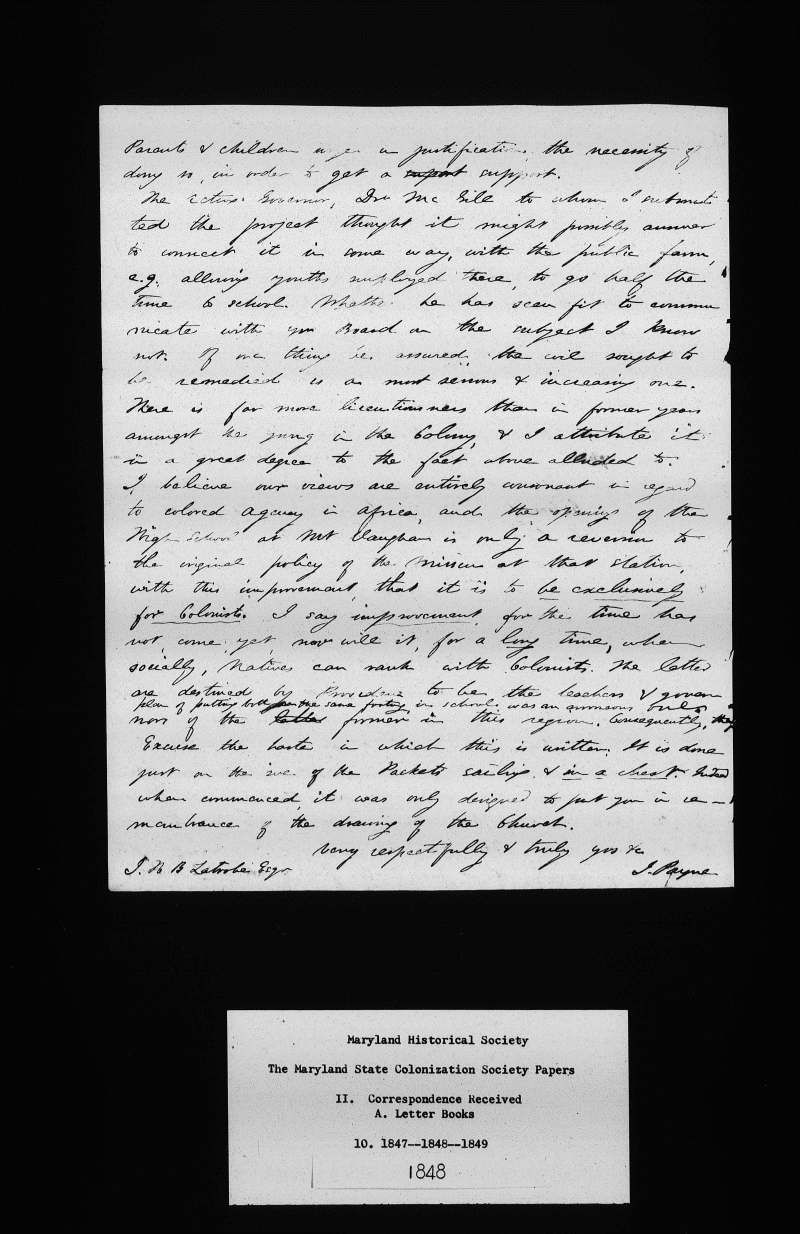 Parents & children urge in justification, the necessity of
doing so, in order to get a support support.
The acting Governor, Dr. McGill to whom I submit-
ted the project thought it might possibly answer
to connect it in some way, with the public farm,
e.g. allowing youths employed there, to go half the
time to school. Whether he has seen fit to commu
nicate with your Board on the subject I know
not. Of one thing be assured, the evil sought to
be remedied is a most serious & increasing one.
There is far more licentiousness than in former years
amongst the young in the Colony, & I attribute it
in a great degree to the fact above alluded to.
I believe our views are entirely consonant in regard
to colored agency in Africa, and the opening of the
High School at Mt Vaughan is only a reversion to
the original policy of the Mission at that station,
with this improvement, that it is to be exclusively
for Colonists. I say improvement, for the time has
not come yet, nor will it, for a long time, when
socially, Natives can rank with Colonists. The latter
are destined by Providence to be the teachers & gover
plan of putting both on the same footing in schools was an erroneous one.
nors of the latter former in this region. Consequently, the
Excuse the haste in which this is written. It is done
just on the eve of the Packets sailing & in a chest. Indeed
when commenced, it was only designed to put you in re-
membrance of the drawing of the Church.
Very respectfully & truly yrs &c
J. H B Latrobe Esqr
J. Payne
Maryland Historical Society
The Maryland State Colonization Society Papers
II. Correspondence Received
A. Letter Books
10. 1847--1848--1849
1848